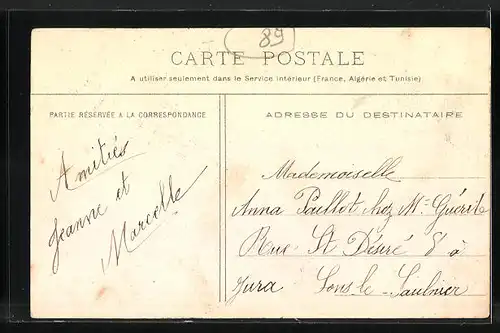 89
CARTE POSTALE
A utiliser seulement dans le Service Intérieur (France, Algérie et Tunisie)
PARTIE RÉSERVÉE A LA CORRESPONDANCE
Amitiés
Jeanne et
Marcelle
ADRESSE DU DESTINATAIRE
Mademoiselle
Anna Paillot chez Mr Guérit
Rue St Désiré 8 à
Jura Lons-le-Saulnier